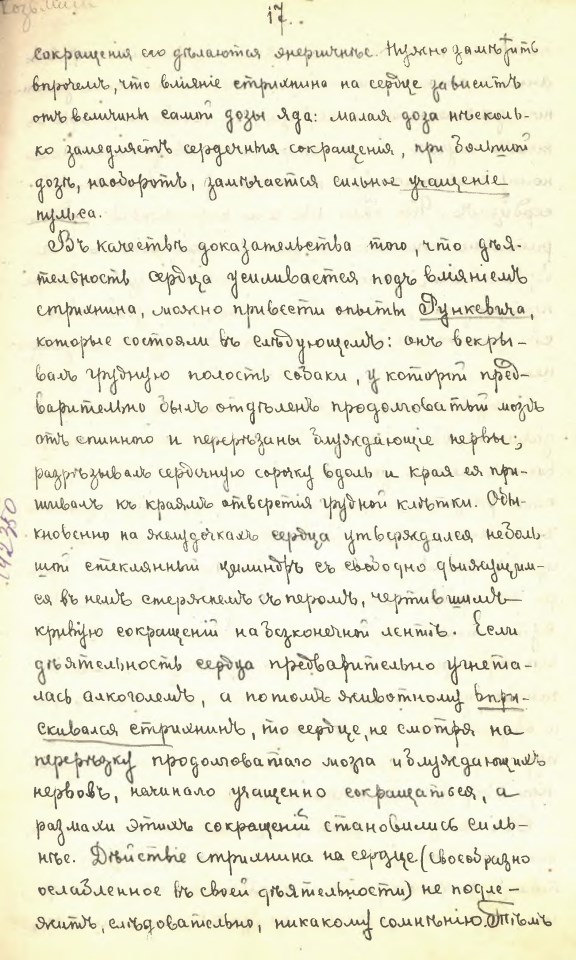 17.
сокращенія его дѣлаются энергичнѣе. Нужно замѣтить
впрочемъ, что вліяніе стрихнина на сердце зависитъ
отъ величины самой дозы яда: малая доза нѣсколь-
ко замедляетъ сердечныя сокращенія, при большой
дозѣ, наоборотъ, замѣчается сильное учащеніе
пульса.
Въ качествѣ доказательства того, что дѣя-
тельность сердца усиливается подъ вліяніемъ
стрихнина, можно привести опыты Рункевича,
которые состояли въ слѣдующемъ: онъ вскры-
валъ грудную полость собаки, у которой пред-
варительно былъ отдѣленъ продолговатый мозгъ
отъ спинного и перерѣзаны блуждающіе нервы;
разрѣзывалъ сердечную сорочку вдоль и края ея при-
шивалъ къ краямъ отверстія грудной клѣтки. Обы-
кновенно на желудочкахъ сердца утверждался неболь
шой стеклянный цилиндръ съ свободно движущим-
ся въ немъ стержнемъ съ перомъ, чертившимъ
кривую сокращеній на безконечной лентѣ. Если
дѣятельность сердца предварительно угнета-
лась алкоголемъ, а потомъ животному впры-
скивался стрихнинъ, то сердце, не смотря на
перерѣзку продолговатаго мозга и блуждающихъ
нервовъ, начинало учащенно сокращаться, а
размахи этихъ сокращеній становились силь-
нѣе. Дѣйствіе стрихнина на сердце (своеобразно
ослабленное въ своей дѣятельности) не подле-
житъ, слѣдовательно, никакому сомнѣнію. Тѣмъ